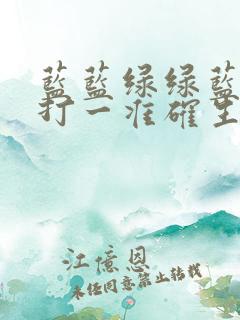 藍藍绿绿藍
打一准確生
江億恩
未经同意禁止转载